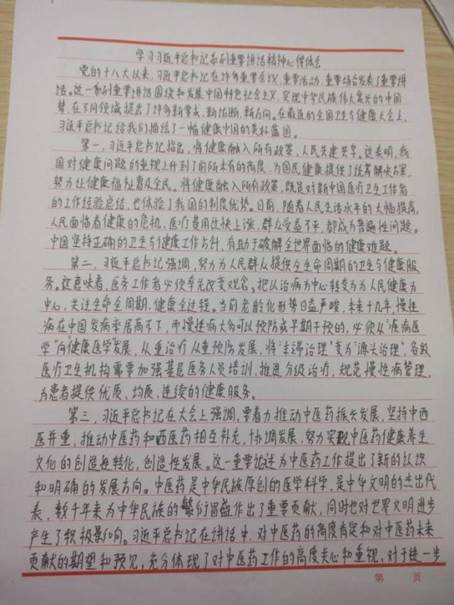 学习习近平总书记系列重要讲话精神心得体会
党的十八大以来，习近平总书记在许多重要会议、重要活动、重要场合发表了重要讲
话。这一系列重要讲话围绕和发展中国特色社会主义，实现中华民族伟大复兴的中国
梦，在不同领域提出了许多新要求、新论断、新方向。在最近的全国卫生与健康大会上，
习近平总书记给我们描绘了一幅健康中国的美好蓝图。
第一，习近平总书记指出，将健康融入所有政策，人民共建共享。这表明，我
国对健康问题的重视上升到了前所未有的高度，为国民健康提供了统筹解决方案，
努力让健康福祉普及全民。将健康融入所有政策，既是对新中国医疗卫生工作者
的工作经验总结，也体验了我国的制度优势。目前，随着人民生活水平的大幅提高，
人民面临着健康的危机，医疗费用快速上涨，群众受益不平，都成为普遍性问题。
中国坚持正确的卫生与健康工作方针，有助于破解全世界面临的健康难题。
第二，习近平总书记强调，努力为人民群众提供全生命周期的卫生与健康服
务。这意味着，医务工作者必须率先改变观念。把以治病为中心转变为为人民健康为
中心，关注生命全周期，健康全过程。当前老龄化形势日益严峻，未来十几年，慢性
病在中国发病率居高不下，而慢性病大多可以预防或早期干预的，必须从"疾病医
学"向健康医学发展，从重治疗从重预防发展，将"末端治理"变为"源头治理"。各级
医疗卫生机构需要加强基层医务人员培训，推进分级治疗，规范慢性病管理，
为患者提供优质、均质、连续的健康服务。
第三，习近平总书记在大会上强调，要着力推动中医药振兴发展，坚持中西
医并重，推动中医药和西医药相互补充，协调发展，努力实现中医药健康养生
文化的创造性转化，创造性发展。这一重要论述为中医药工作提出了新的认识
和明确的发展方向。中医药是中华民族原创的医学科学，是中华文明的杰出代
表，数千年来为中华民族的繁衍昌盛作出了重要贡献，同时也对世界文明进步
产生了积极影响。习近平总书记在讲话中，对中医药的高度肯定和对中医药未来
贡献的期望和预见，充分体现了对中医药工作的高度关心和重视，对于进一步
第 页